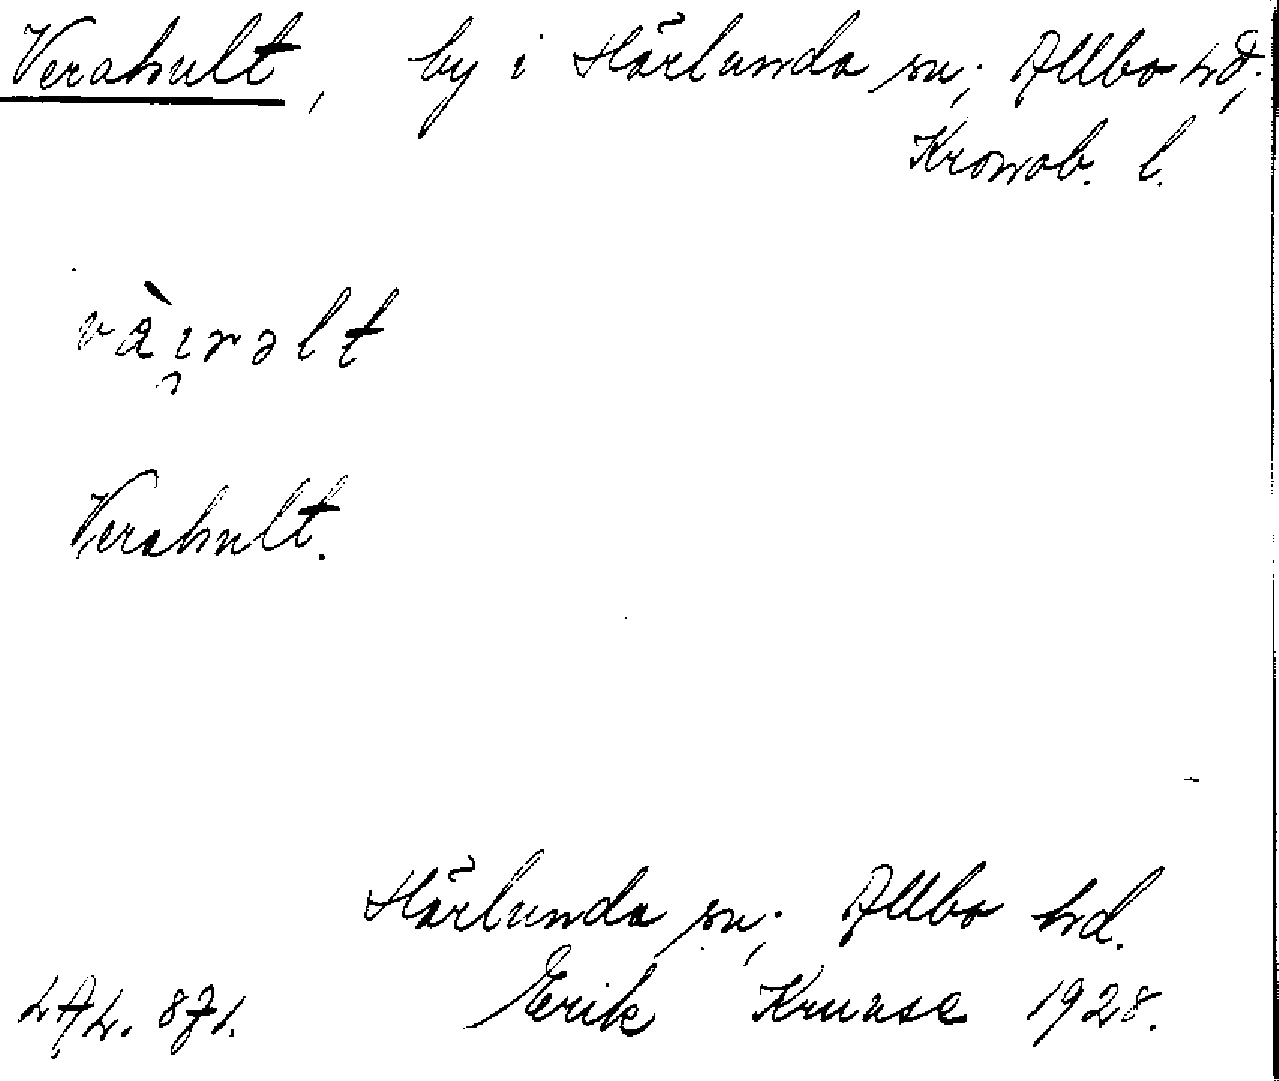 Verahult, by i Härlunda sn; Allbo hd;
Kronob. l.
vàı̯rəlt
Verahult.
Härlunda sn; Allbo hd.
Erik Kruuse 1928.
LAL. 871.